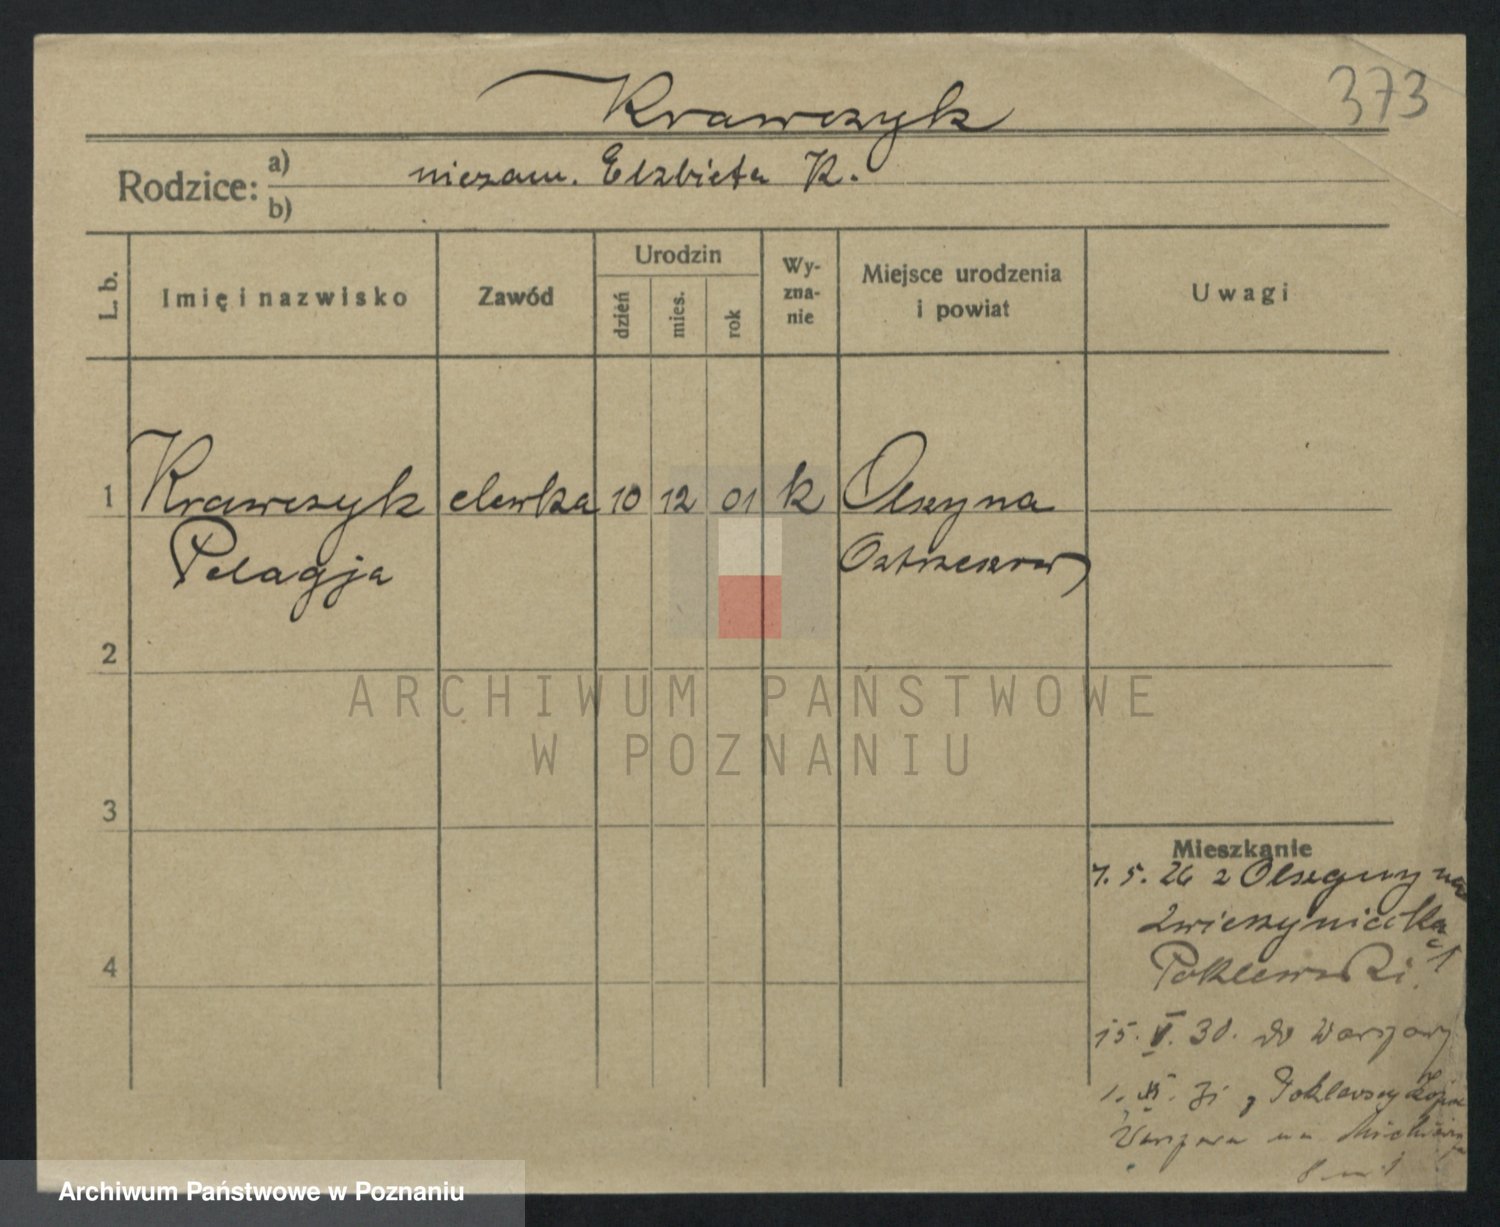 373
Krawczyk
Rodzice: a) niezam. Elżbieta K.
b)
L. b.
Imię i nazwisko
Zawód
Urodzin
dzień
mies.
rok
Wy-
zna-
nie
Miejsce urodzenia
i powiat
Uwagi
1 Krawczyk elewka 10 12 01 k Olszyna
Pelagja Ostrzeszów
2
3
4
Mieszkanie
7. 5. 26 z Olszyny na
Poklewski
15. V. 30. do Warszawy
1. XI. 31 z
Warszawa na
ARCHIWUM PAŃSTWOWE
W POZNANIU
Archiwum Państwowe w Poznaniu